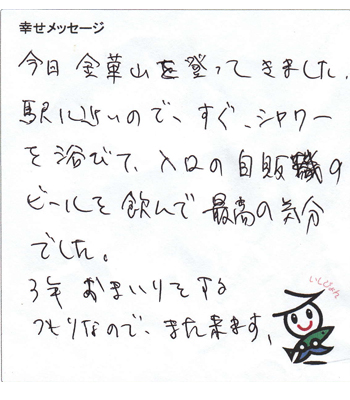 幸せメッセージ
今日 金華山を登ってきました。
駅に近いので、すぐ、シャワー
を浴びて、入口の自販機の
ビールを飲んで最高の気分
でした。
3年 おまいりをする
つもりなので、また来ます。